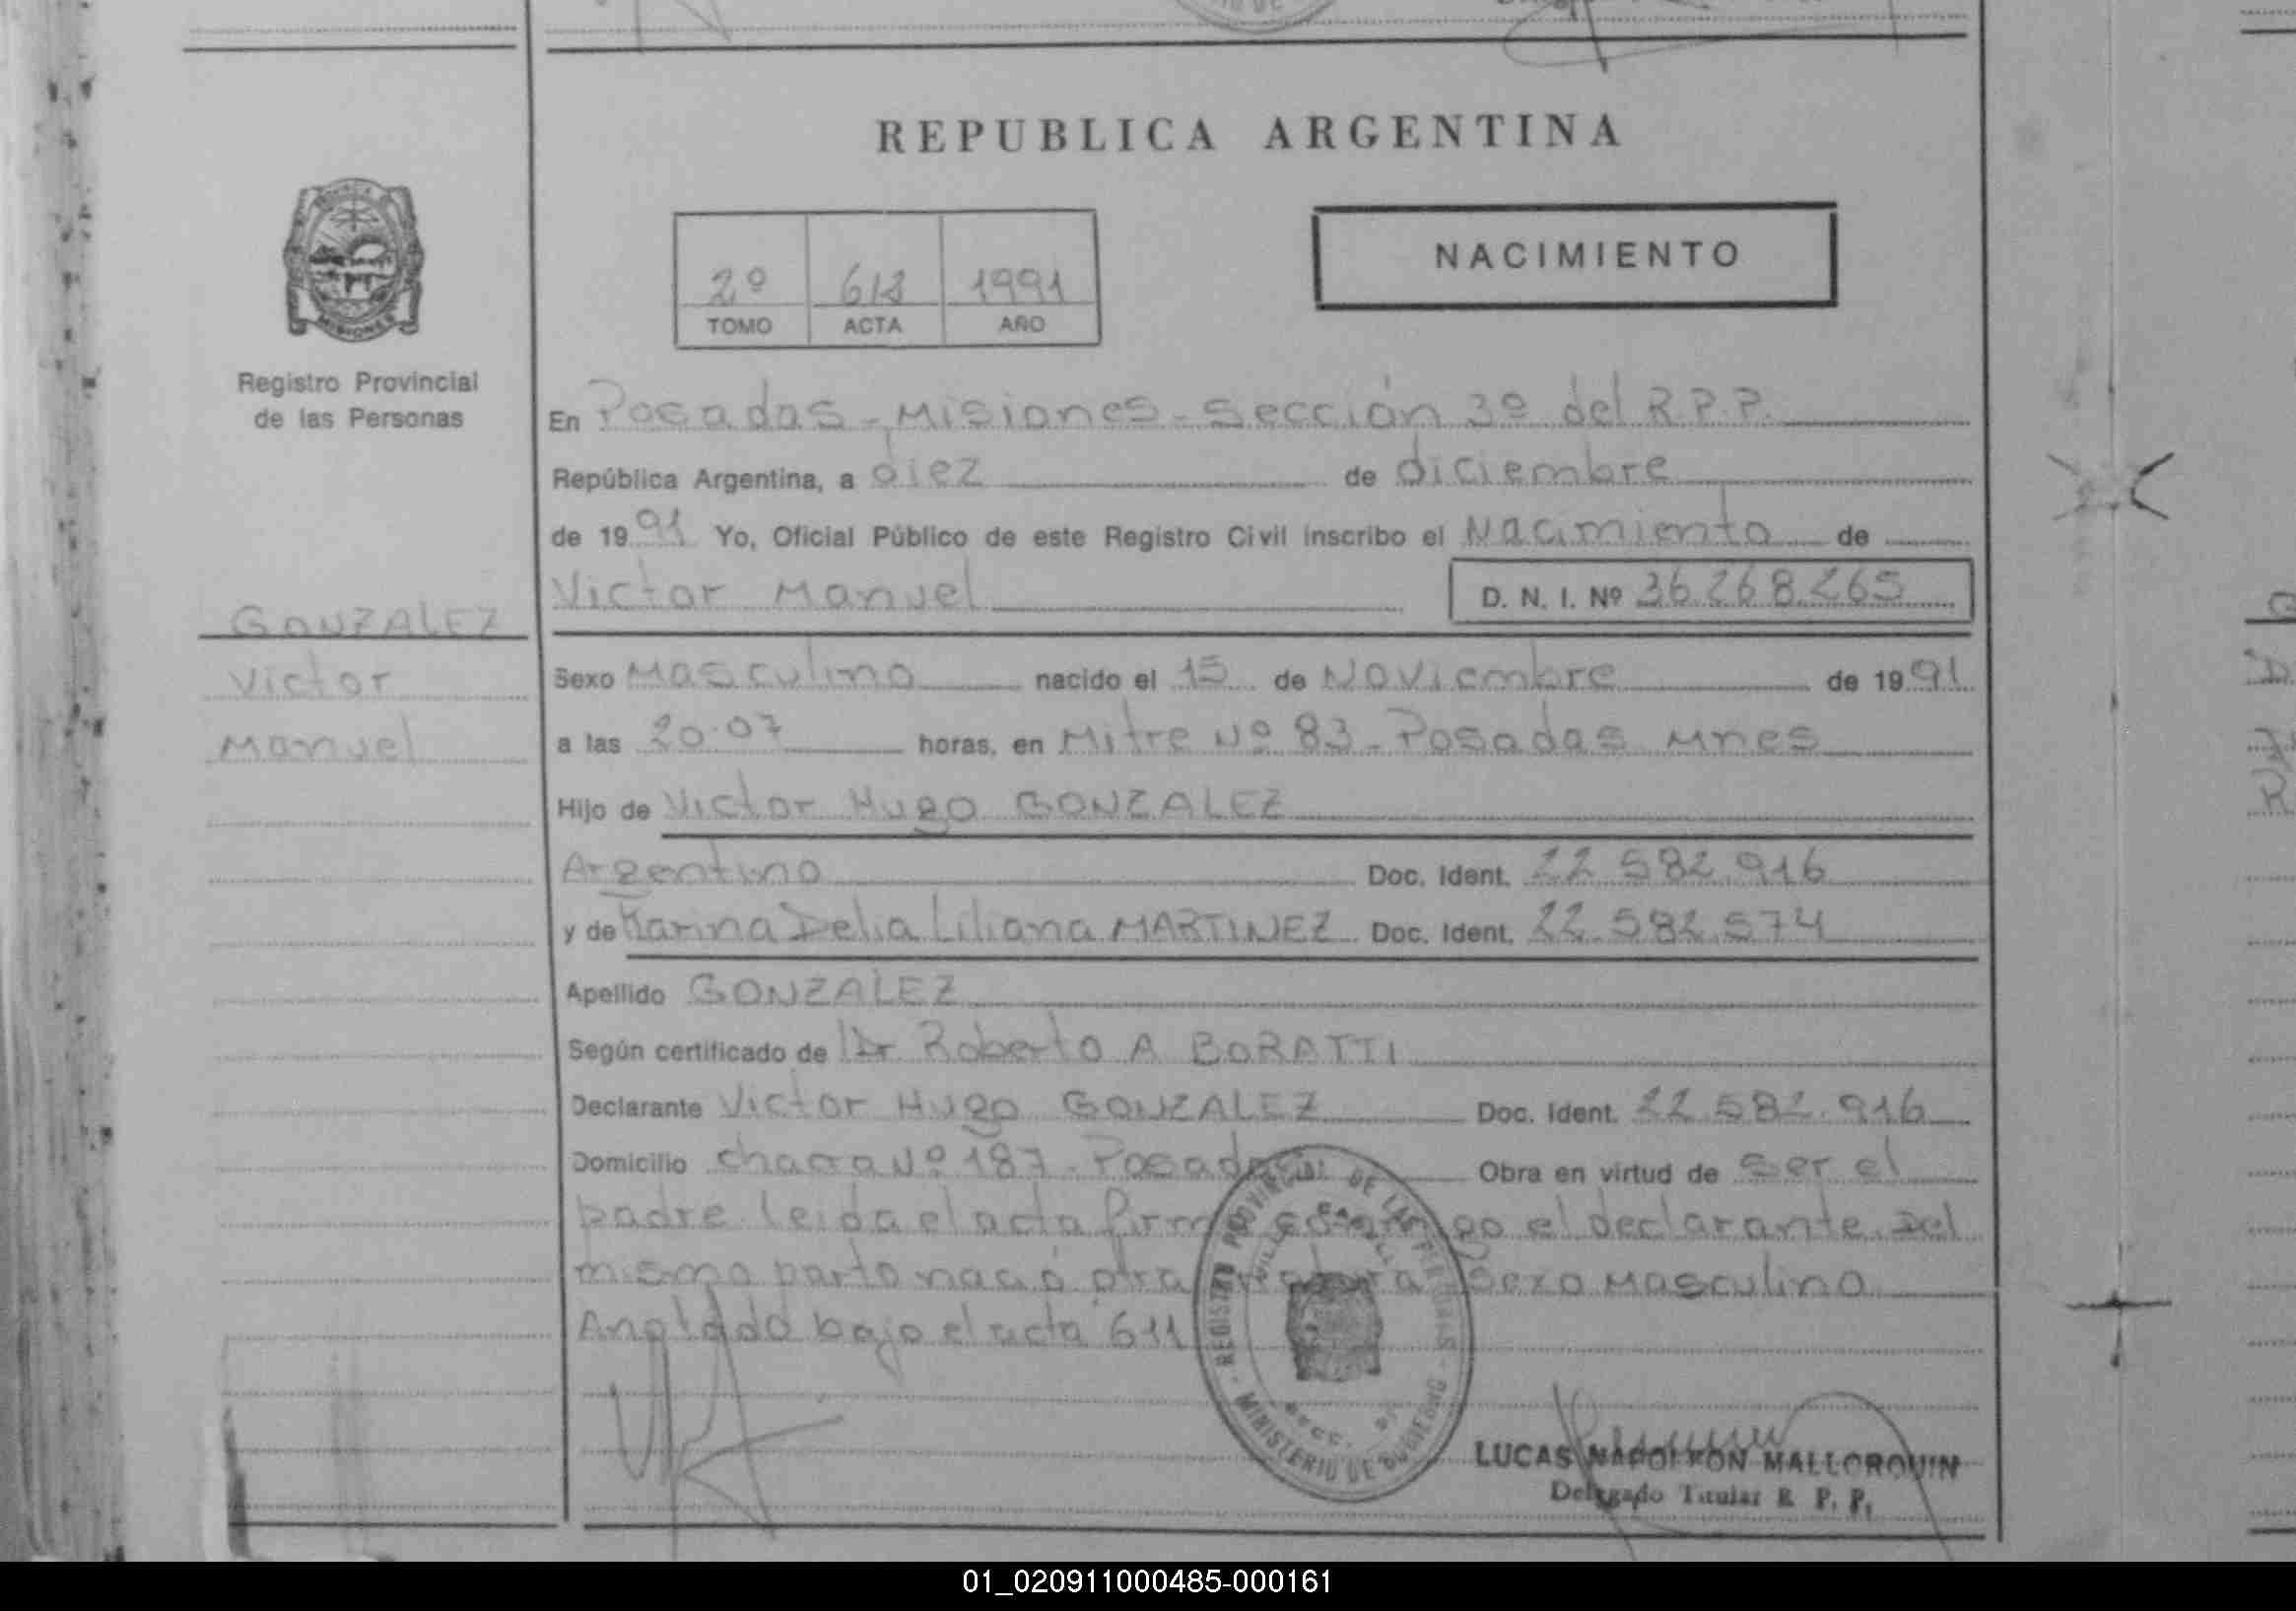 REPUBLICA ARGENTINA
NACIMIENTO
2º 1991
TOMO ACTA AÑO
MISIONES
Registro Provincial
de las Personas
En Posadas - Misiones - Sección 3º del R.P.P.
República Argentina, a diez de diciembre
de 1991 Yo, Oficial Público de este Registro Civil inscribo el Nacimiento de
Victor Manuel D. N. I. Nº 36.268.265
GONZALEZ
Victor
Manuel
Sexo Masculino nacido el 15 de Noviembre de 1991
a las 20.07 horas, en Mitre Nº 83 - Posadas Mnes
Hijo de Victor Hugo GONZALEZ
Argentino Doc. Ident. 22.582.916
y de Karina Delia Liliana MARTINEZ Doc. Ident. 22.582.574
Apellido GONZALEZ
Según certificado de Dr Roberto A BORATTI
Declarante Victor Hugo GONZALEZ Doc. Ident. 22.582.916
Domicilio chacra Nº 187 - Posadas Obra en virtud de ser el
padre. leida el acta firma conmigo el declarante. Del
mismo parto nació otra sexo Masculino
Anotado bajo el acta 611
REGISTRO PROVINCIAL DE LAS PERSONAS - MINISTERIO DE GOBIERNO -
LUCAS NAPOLEON MALLORQUIN
Delegado Titular R. P. P.
01_020911000485-000161